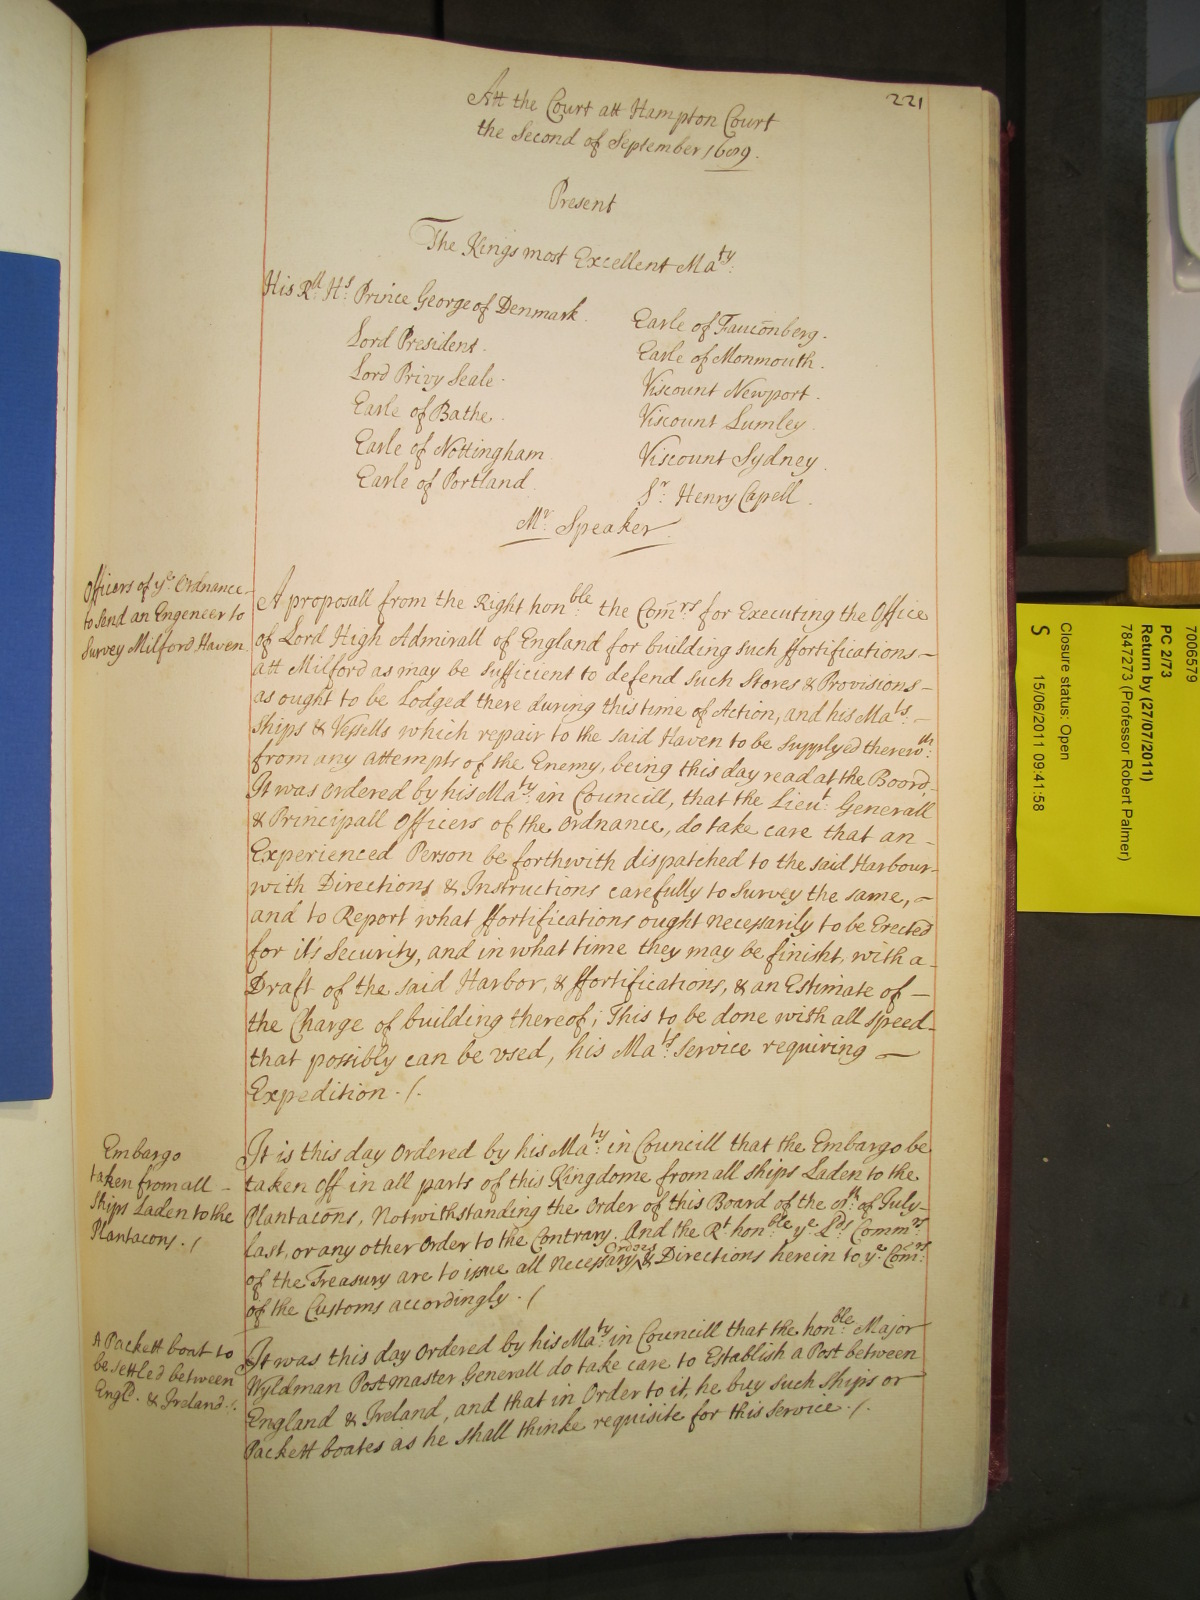 221
Att the Court att Hampton Court
the Second of September 1689.
Present
The Kings most Excellent Ma^ty:
His R^ll H^s: Prince George of Denmark.
Lord President.
Lord Privy Seale.
Earle of Bathe.
Earle of Nottingham
Earle of Portland.
Earle of Fauconberg.
Earle of Monmouth.
Viscount Newport.
Viscount Lumley.
Viscount Sydney.
S^r: Henry Capell.
M^r: Speaker.
Officers of y^e Ordnance
to send an Engeneer to
Survey Milford Haven.
A proposall from the Right hon^ble: the Com̄^rs for Executing the Office
of Lord High Admirall of England for building such ffortifications
att Milford as may be sufficient to defend such Stores & Provisions
as ought to be Lodged there during this time of Action, and his Ma^ts:
Ships & Vessells which repair to the said Haven to be supplyed therew^th:
from any attempts of the Enemy, being this day read at the Boord,
It was ordered by his Ma^ty: in Councill, that the Lieu^t: Generall
& Principall Officers of the Ordnance, do take care that an
Experienced Person be forthwith dispatched to the said Harbour
with Directions & Instructions carefully to Survey the same,
and to Report what ffortifications ought necessarily to be Erected
for it's Security, and in what time they may be finisht, with a
Draft of the said Harbor, & ffortifications, & an Estimate of
the Charge of building thereof; This to be done with all speed
that possibly can be used, his Ma^ts: Service requiring
Expedition. /.
Embargo
taken from all
Ships Laden to the
Plantacons. /
It is this day Ordered by his Ma^ty: in Councill that the Embargo be
taken off in all parts of this Kingdome from all ships Laden to the
Plantacōns, Notwithstanding the Order of this Board of the of July
last, or any other Order to the Contrary. And the R^t hon^ble y^e L^ds Comm^rs
of the Treasury are to issue all necessary Orders & Directions herein to y^e Com^rs:
of the Customs accordingly. /
A Packett boat to
be settled between
Engl^d. & Ireland /.
It was this day Ordered by his Ma^ty: in Councill that the hon^ble: Major
Wyldman Postmaster Generall do take care to Establish a Post between
England & Ireland, and that in Order to it, he buy such ships or
Packett boates as he shall thinke requisite for this Service. /.
7006579
PC 2/73
Return by (27/07/2011)
7847273 (Professor Robert Palmer)
Closure status: Open
S 15/06/2011 09:41:58